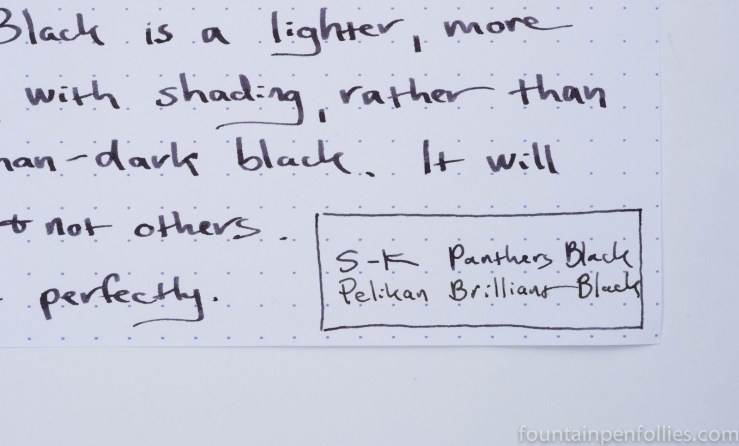 Black is a lighter, more
with shading, rather than
han-dark black. It will
not others.
perfectly.
S-K Panthers Black
Pelikan Brilliant Black
fountainpenfollies.com